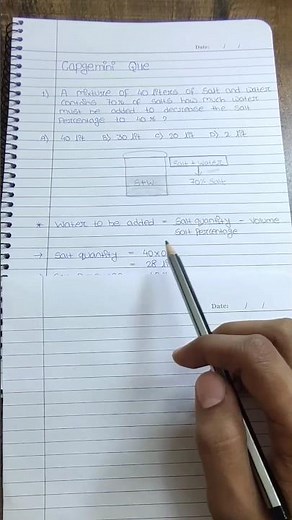 Date: / /
Capgemini Que
1) A mixture of 40 liters of salt and water
contains 70% of salts how much water
must be added to decrease the salt
percentage to 40% ?
A) 40 lit B) 30 lit C) 20 lit D) 2 lit
Salt + water
70% salt
S+W
* Water to be added = Salt quantity - volume
Salt percentage
→ Salt quantity = 40×0
= 28 l
Date: / /